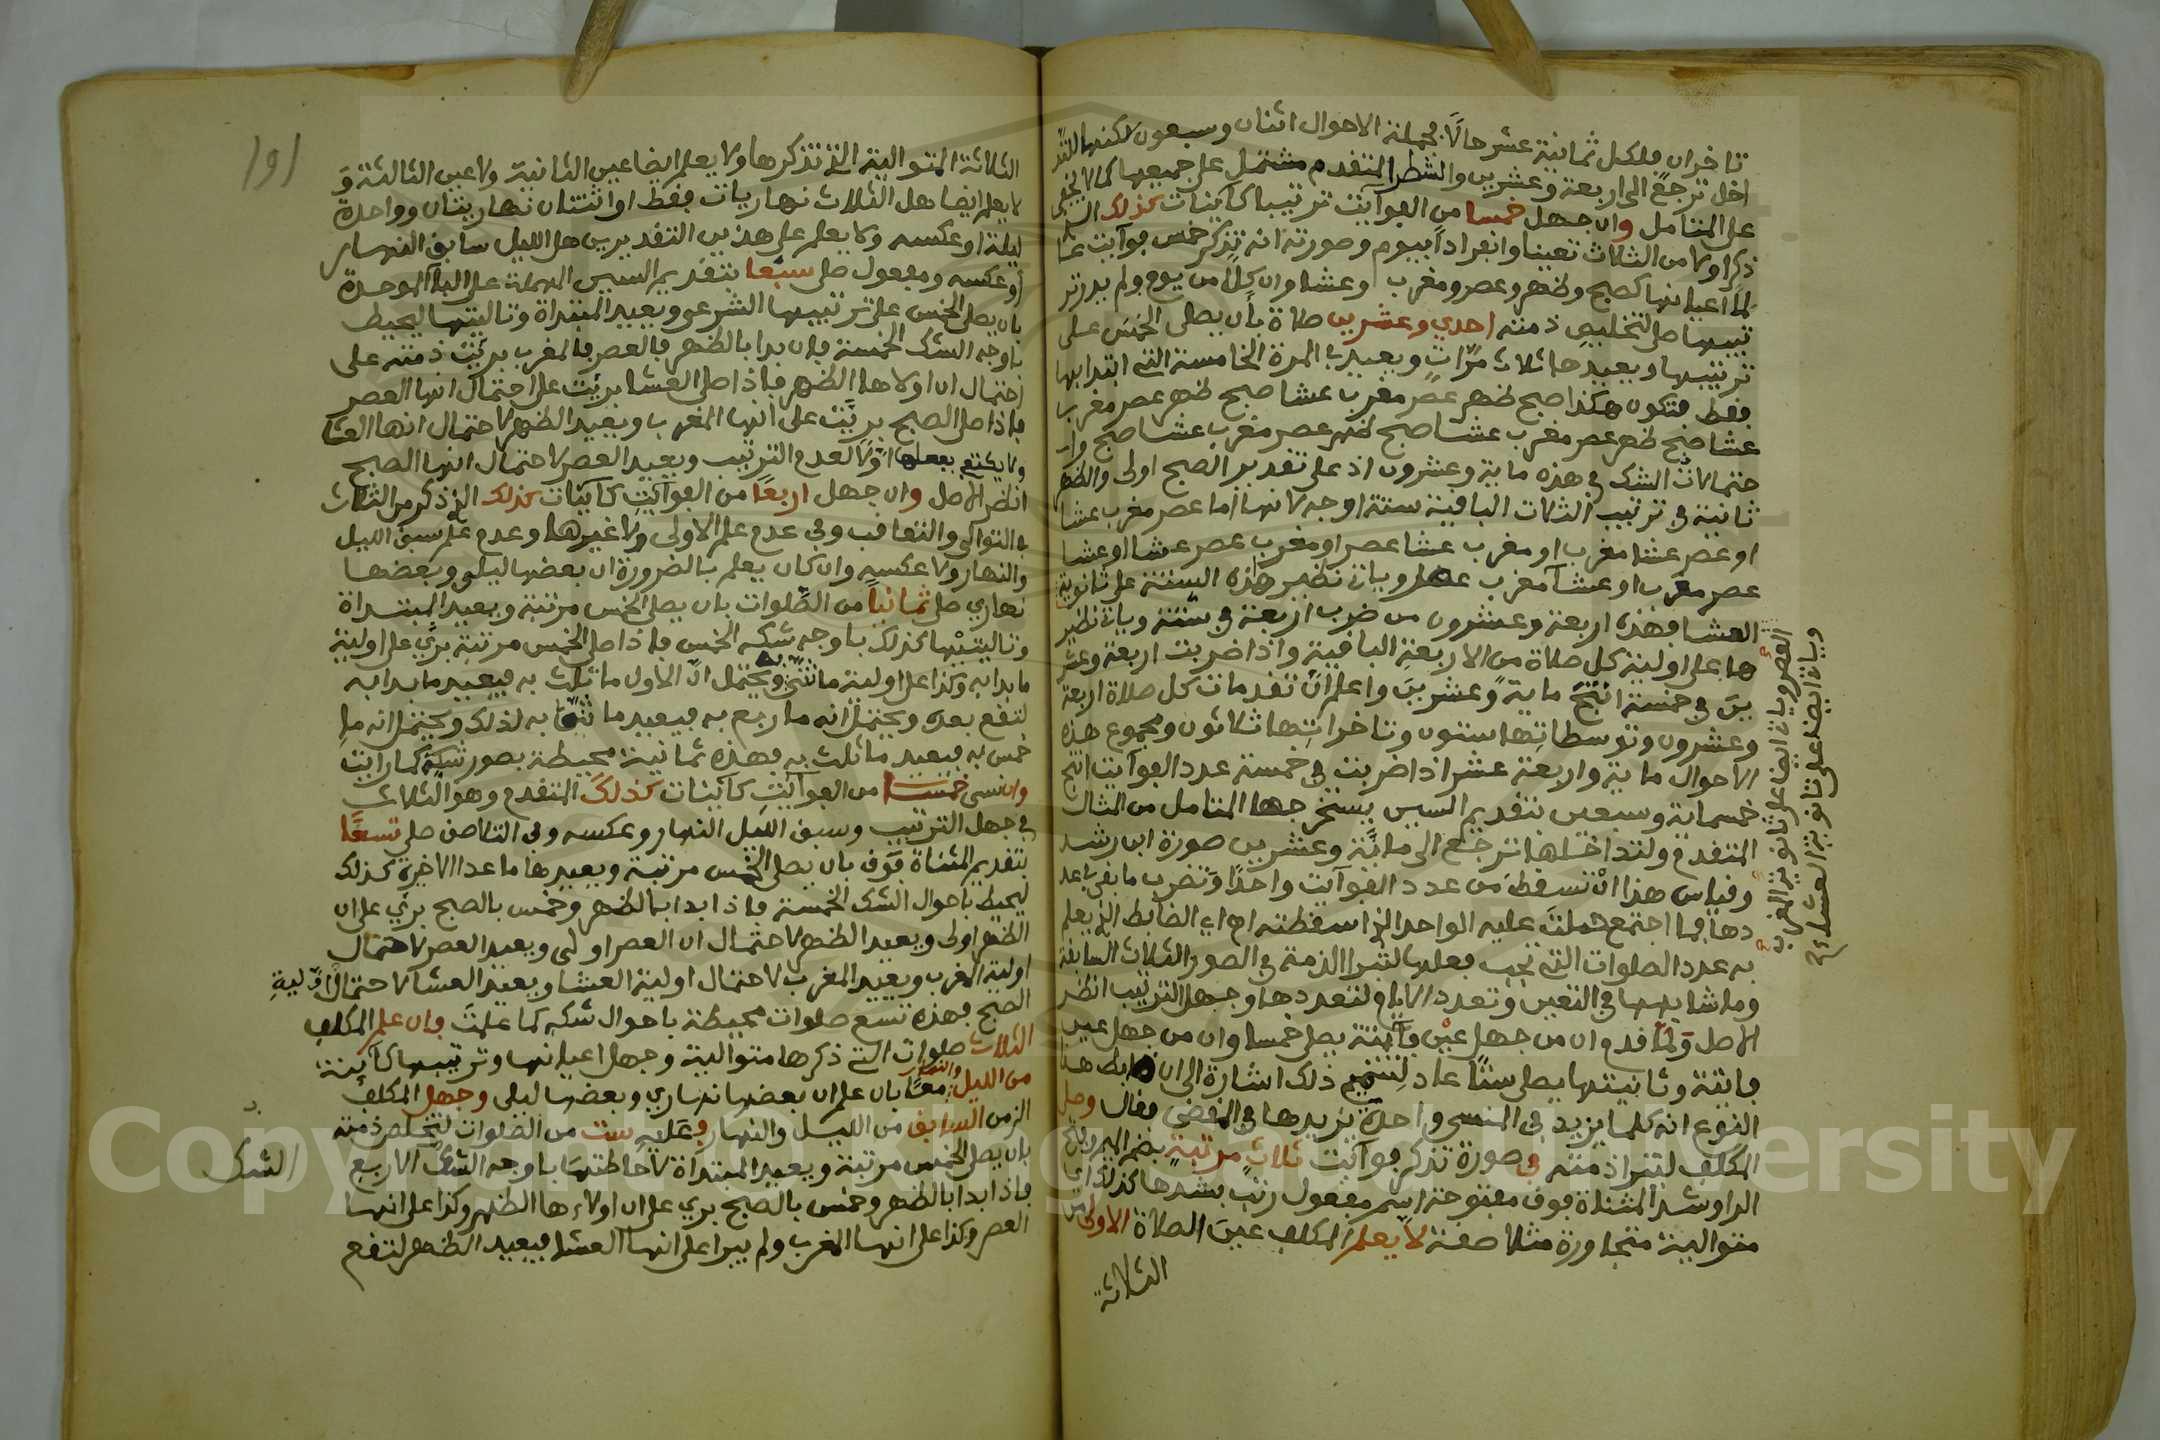 تاخران فلكل ثمانية عشر حالا فجملة الاحوال اثنان وسبعون لكنها للتد
اخل ترجع الى اربعة وعشرين والشطر المتقدم مشتمل على جميعها كما لا يخفى
على المتامل وان جهل خمسا من الفوآيت ترتيبا كاينات كذلك
ذكر اولا من الثلاث تعينا وانفرادا بيوم وصورته انه تذكر خمس فوآيت
اعيانها كصبح وظهر وعصر ومغرب وعشا وان كلا من يوم ولم يدر تر
تيبها صلى لتخليص ذمته احدي وعشرين صلاة بأن يصلى الخمس على
ترتيبها ويعيدها ثلاث مرّات ويعيد في المرة الخامسة التى ابتدا بها
فقط فتكون هكذا صبح ظهر عصر مغرب عشا صبح ظهر عصر مغرب
عشا صبح ظهر عصر مغرب عشا صبح ظهر عصر مغرب عشا صبح وا
حتمالات الشك في هذه ماية وعشرون اذ على تقدير الصبح اولى والظهر
ثانية في ترتيب الثلاث الباقية ستة اوجه لانها اما عصر مغرب عشا
او عصر عشا مغرب او مغرب عشا عصر او مغرب عصر عشا او عشا
عصر مغرب او عشآ مغرب عصر وياتى نظير هذه الستة على ثانوية
العشا فهذه اربعة وعشرون من ضرب اربعة في ستة وياتى نظير
ها على اولية كل صلاة من الاربعة الباقية واذا ضربت اربعة وعشر
ين في خمسة انتج ماية وعشرين واعلم انّ تقدمات كل صلاة اربعة
وعشرون وتوسطاتها ستون وتاخراتها ثلاثون ومجموع هذه
الاحوال ماية واربعة عشر اذا ضربت في خمسة عدد الفوآيت انتج
خمسماية وسبعين بتقديم السين يستخرجها المتامل من المثال
المتقدم ولتداخلها ترجع الى ماية وعشرين صورة ابن رشد
وقياس هذا انْ تسقط من عدد الفوآيت واحدا وتضرب ما بقى في عد
دها فما اجتمع حملت عليه الواحد الذي اسقطته اه اي الضابط الذي يعلم
به عدد الصلوات التى يجب فعلها لتبرا الذمة في الصور الثلاث السابقة
وما شابهها في التعين وتعدد الايام ولتعددها وجهل الترتيب انظر
الاصل ولمّا قدم ان من جهل عيْن فآيتة يصلى خمسا وان من جهل عين
فايتة وثانيتها يصلى ستّا عاد لتتميم ذلك اشارة الى ان ضابط هذا
النوع انه كلما يزيد في المنسى واحدة يزيدها في المقضى فقال وصلى
المكلف لتبرا ذمته في صورة تذكر فوآيت ثلاث مرتبة بضم الميم وفتح
الرا وشد المثناة فوق مفتوحة اسم مفعول رتب بشدها كذلك اي
متوالية متجاورة مثلا صفة لا يعلم المكلف عين الصلاة الاولى من
الثلاثة
العصر وياتى ايضا على ثانوية المغرب
وياتى ايضا على ثانوية العشا
١٥١
الثلاثة المتوالية التى تذكرها ولا يعلم ايضا عين الثانية ولا عين الثالثة و
لا يعلم ايضا هل الثلاث نهاريات فقط او اثنتان نهاريتان وواحدة
ليلة او عكسه ولا يعلم على هذين التقديرين هل الليل سابق النهار
او عكسه ومفعول صلى سبعا بتقديم السين المهملة على البا الموحدة
بان يصلى الخمس على ترتيبها الشرعى ويعيد المبتداة وتاليتها ليحيط
باوجه الشك الخمسة فان بدا بالظهر فالعصر فالمغرب بريت ذمته على
احتمال ان اولاها الظهر فاذا صلى العشا بريت على احتمال انها العصر
فاذا صلى الصبح بريت على انها المغرب ويعيد الظهر لاحتمال انها العشا
ولا يكتفى بفعلها اوّلا لعدم الترتيب ويعيد العصر لاحتمال انها الصبح
انظر الاصل وان جهل اربعا من الفوآيت كاينات كذلك الذي ذكر من الثلاث
في التوالى والتعاقب وفى عدم علم الاولى ولا غيرها وعدم علم سبق الليل
والنهار ولا عكسه وان كان يعلم بالضرورة ان بعضها ليلى وبعضها
نهاري صلى ثمانيا من الصّلوات بان يصلى الخمس مرتبة ويعيد المبتداة
وتاليتيْها كذلك باوجه شكه الخمس فاذا صلى الخمس مرتبة بري على اولية
ما بدا به وكذا على اولية ما ثنى به ويحتمل انّ الاول ما ثلث به فيعيد ما بدا به
لتقع بعده ويحتمل انه ما ربع به فيعيد ما ثنى به لذلك ويحتمل انه ما
خمس به فيعيد ما ثلث به فهذه ثمانية محيطة بصور شكه كما رايت
وان نسى خمسا من الفوآيت كاينات كذلك المتقدم وهو الثلاث
في جهل الترتيب وسبق الليل النهار وعكسه وفى التلاصق صلى تسعا
بتقديم المثناة فوق بان يصلى الخمس مرتبة ويعيدها ما عدا الاخيرة كذلك
ليحيط باحوال الشك الخمسة فاذا ابدا بالظهر وخمس بالصبح بري على ان
الظهر اولى ويعيد الظهر لاحتمال ان العصر اولى ويعيد العصر لاحتمال
اولية المغرب ويعيد المغرب لاحتمال اولية العشا ويعيد العشا لاحتمال اوّلية
الصبح فهذه تسع صلوات محيطة باحوال شكه كما علمت وان علم المكلف
الثلاث صلوات التى ذكرها متوالية وجهل اعيانها وترتيبها كآينة
من الليل والنهار معًا بان علم ان بعضها نهاري وبعضها ليلى وجهل المكلف
الزمن السابق من الليل والنهار فعليه ست من الصلوات لتخلص ذمته
بان يصلى الخمس مرتبة ويعيد المبتداة لاحاطتها باوجه الشك الاربع
فاذا ابدا بالظهر وخمس بالصبح بري على ان اولاءها الظهر وكذا على انها
العصر وكذا على انها المغرب ولم يبرا على انها العشا فيعيد الظهر لتقع
الشك